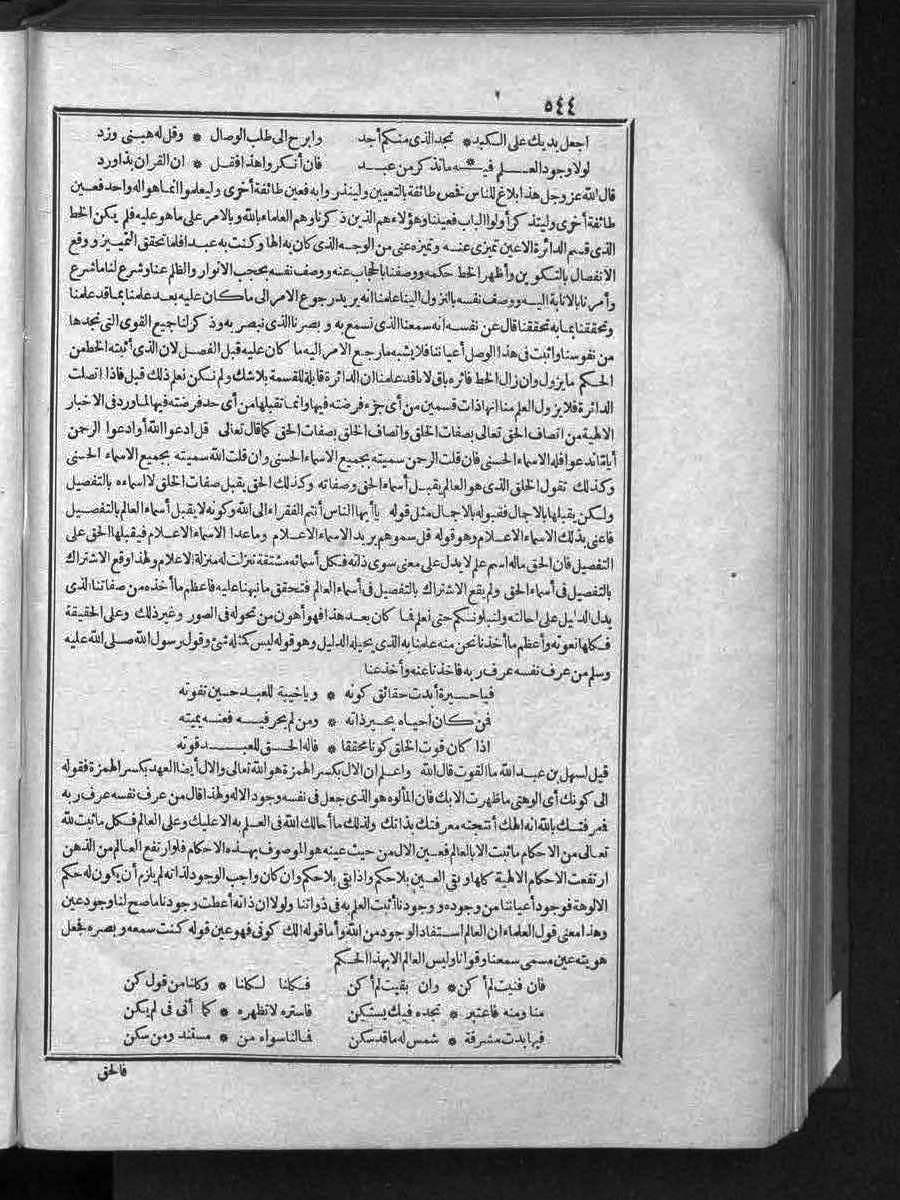 ٥٤٤
اجعل يديك على الكبد * تجد الذى منكم أجد وابرح الى طلب الوصال * وقل له هبنى وزد
لولا وجود العلم فيه * ما تذكر من عبد فان أنكروا هذا فقل * ان القران بذا ورد
قال الله عز وجل هذا بلاغ للناس فخص طائفة بالتعيين ولينذروا به فعين طائفة أخرى وليعلموا انما هو اله واحد فعين
طائفة أخرى وليتذكر أولوا الباب فعينا وهؤلاء هم الذين ذكرناوهم العلماء بالله وبالامر على ما هو عليه فلم يكن الخط
الذى قسم الدائرة الاعين تميزى عنه وتميزه عنى من الوجه الذى كان به الها وكنت به عبدا فلما تحقق التمييز ووقع
الانفصال بالتكوين وأظهر الخط حكمه ووصفنا بالحجاب عنه ووصف نفسه بحجب الانوار والظلم عنا وشرع لنا ما شرع
وأمرنا بالانابة اليه ووصف نفسه بالنزول الينا علمنا انه يريد رجوع الامر الى ما كان عليه بعد علمنا بما قد علمنا
وتحققنا بما به تحققنا قال عن نفسه انه سمعنا الذى نسمع به وبصرنا الذى نبصر به وذكر لنا جميع القوى التى نجدها
من نفوسنا واثبت فى هذا الوصل أعياننا فلا يشبه ما رجع الامر اليه ما كان عليه قبل الفصل لان الذى أثبته الخط من
الحكم ما يزول وان زال الخط فاثره باق لاناقد علمنا ان الدائرة قابلة للقسمة بلا شك ولم نكن نعلم ذلك قبل فاذا اتصلت
الدائرة فلا يزول العلم منا انها ذات قسمين من أى جزء فرضته فيها وانما تقبلها من أى حد فرضته فيها لما ورد فى الاخبار
الالهية من اتصاف الحق تعالى بصفات الخلق واتصاف الخلق بصفات الحق كما قال تعالى قل ادعوا الله أوادعوا الرحمن
أياما تدعوا فله الاسماء الحسنى فان قلت الرحمن سميته بجميع الاسماء الحسنى وان قلت الله سميته بجميع الاسماء الحسنى
وكذلك تقول الخلق الذى هو العالم يقبل أسماء الحق وصفاته وكذلك الحق يقبل صفات الخلق لا اسماءه بالتفصيل
ولكن يقبلها بالاجمال فقبوله بالاجمال مثل قوله يا أيها الناس أنتم الفقراء الى الله وكونه لا يقبل أسماء العالم بالتفصيل
فاعنى بذلك الاسماء الاعلام وهو قوله قل سموهم يريد الاسماء الاعلام وما عدا الاسماء الاعلام فيقبلها الحق على
التفصيل فان الحق ماله اسم علم لا يدل على معنى سوى ذاته فكل أسمائه مشتقة تنزلت له منزلة الاعلام ولهذا وقع الاشتراك
بالتفصيل فى أسماء الحق ولم يقع الاشتراك بالتفصيل فى أسماء العالم فتحقق ما نبهنا عليه فاعظم ما أخذه من صفاتنا الذى
يدل الدليل على احالته ولنبلونكم حتى نعلم فما كان بعد هذا فهو أهون من تحوله فى الصور وغير ذلك وعلى الحقيقة
فكلها نعوته وأعظم ما أخذنا نحن منه علمنا به الذى يحيله الدليل وهو قوله ليس كمثله شئ وقول رسول الله صلى الله عليه
وسلم من عرف نفسه عرف ربه فاخذنا عنه وأخذ عنا
فيا حسيرة أبدت حقائق كونه * وياخيبة للعبد حين تفوته
فمن كان احياه يحير ذاته * ومن لم يحر فيه فعنه يميته
اذا كان قوت الخلق كونا محققا * فاله الحق للعبد قوته
قيل لسهل بن عبد الله ما القوت قال الله واعلم ان الال بكسر الهمزة هو الله تعالى والال أيضا العهد بكسر الهمزة فقوله
الى كونك أى الوهتى ما ظهرت الابك فان المألوه هو الذى جعل فى نفسه وجود الاله ولهذا قال من عرف نفسه عرف ربه
فمعرفتك بالله انه الهك أنتجته معرفتك بذاتك ولذلك ما أحالك الله فى العلم به الا عليك وعلى العالم فكل ما ثبت لله
تعالى من الاحكام ما ثبت الا بالعالم فعين الال من حيث عينه هو الموصوف بهذه الاحكام فلو ارتفع العالم من الذهن
ارتفعت الاحكام الالهية كلها وبقى العين بلا حكم واذا بقى بلا حكم وان كان واجب الوجود لذاته لم يلزم أن يكون له حكم
الالوهة فوجود أعياننا من وجوده ووجودنا أثبت العلم به فى ذواتنا ولولا ان ذاته أعطت وجودنا ما صح لنا وجود عين
وهذا معنى قول العلماء ان العالم استفاد الوجود من الله وأما قوله الك كونى فهو عين قوله كنت سمعه وبصره فجعل
هويته عين مسمى سمعنا وقوانا وليس العالم الا بهذا الحكم
فان فنيت لم أكن * وان بقيت لم أكن فكلنا لكلنا * وكلنا من قول كن
منا ومنه فاعتبر * تجده فيك يستكن فاستره لا تظهره * كما أتى فى لم يكن
فيها بدت مشرقة * شمس له ما قد سكن فالنا سواه من * مستند ومن سكن
فالحق